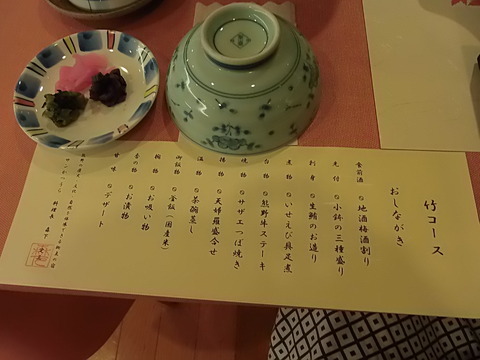 竹コース
おしながき
食前酒 地酒梅酒割り
先付 小鉢の三種盛り
刺身 生鮪のお造り
煮物 いせえび具足煮
台物 熊野牛ステーキ
焼物 サザエつぼ焼き
揚物 天婦羅盛合せ
温物 茶碗蒸し
御飯物 釜飯(国産米)
椀物 お吸い物
香の物 お漬物
甘味 デザート
料理長 森下